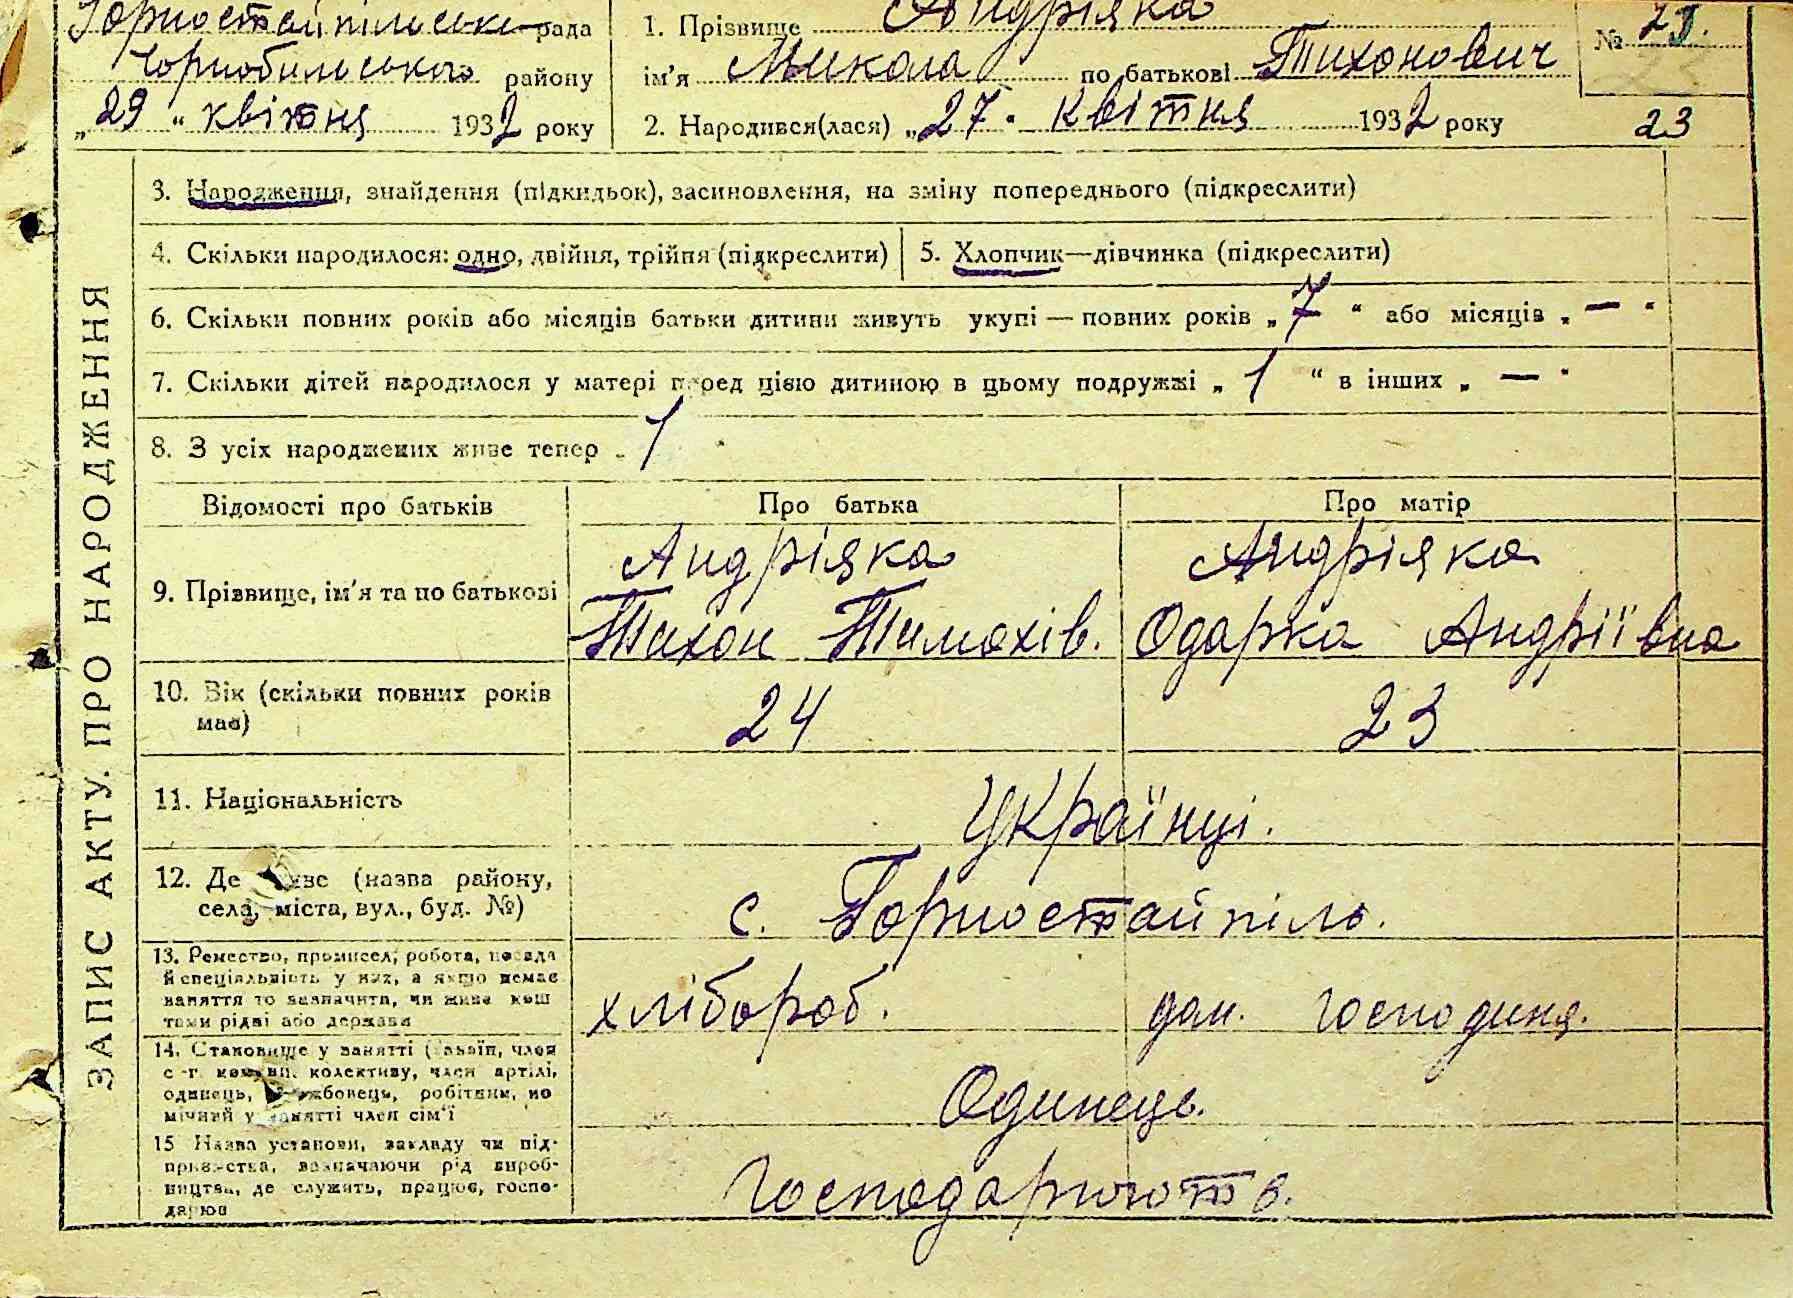 Горностайпільська рада
Чорнобильського району
„29“ квітня 1932 року
1. Прізвище Андріяка
ім'я Микола по батькові Тихонович
2. Народився(лася) „27“ квітня 1932 року
№ 23.
23
ЗАПИС АКТУ. ПРО НАРОДЖЕННЯ
3. Народження, знайдення (підкидьок), засиновлення, на зміну попереднього (підкреслити)
4. Скільки народилося: одно, двійня, трійня (підкреслити)
5. Хлопчик—дівчинка (підкреслити)
6. Скільки повних років або місяців батьки дитини живуть укупі — повних років „7“ або місяців „—“
7. Скільки дітей народилося у матері перед цією дитиною в цьому подружжі „1“ в інших „—“
8. З усіх народжених живе тепер 1
Відомості про батьків
Про батька
Про матір
9. Прізвище, ім'я та по батькові
Андріяка
Тихон Тимохів.
Андріяка
Одарка Андріївна
10. Вік (скільки повних років
має)
24
23
11. Національність
Українці.
12. Де живе (назва району,
села, міста, вул., буд. №)
с. Горностайпіль.
13. Ремество, промисел, робота, посада
й спеціальність у них, а якщо немає
заняття то зазначити, чи живе кош
тами рідні або держави
хлібороб.
дом. господиня.
14. Становище у занятті (хазяїн, член
с-г. комуни, колективу, член артілі,
одинець, службовець, робітник, по
мічний у занятті член сім'ї
Одинець.
15 Назва установи, закладу чи під-
приємства, зазначаючи рід вироб-
ництва, де служить, працює, госпо-
дарює
Господарюють в.